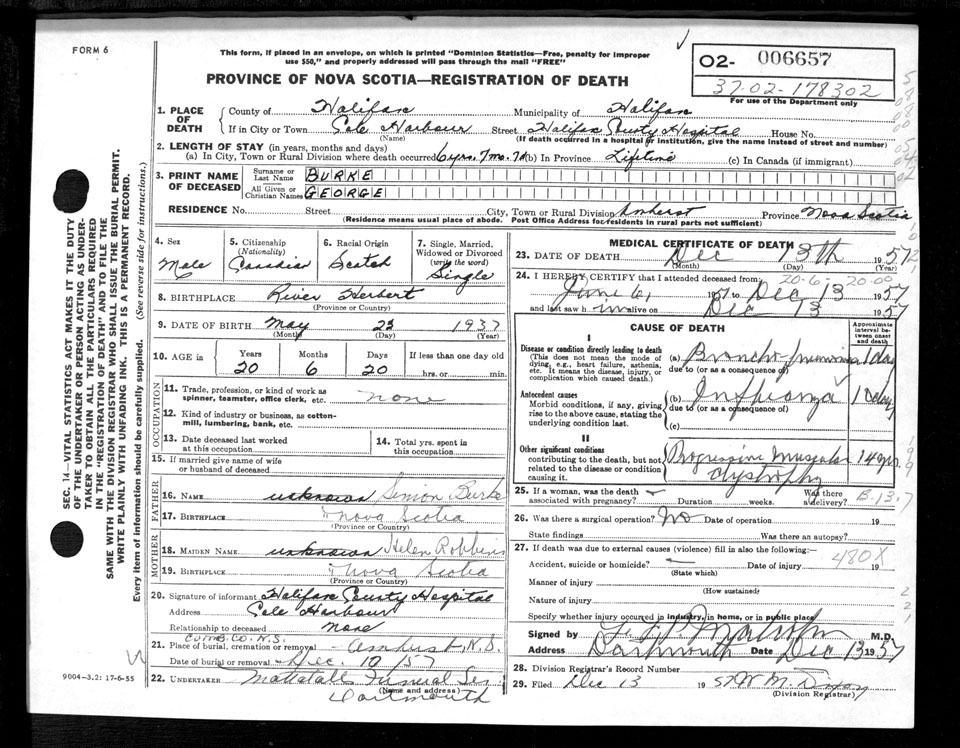 FORM 6
This form, if placed in an envelope, on which is printed "Dominion Statistics—Free, penalty for improper
use $50," and properly addressed will pass through the mail "FREE"
02- 006657
37-02-178302
For use of the Department only
PROVINCE OF NOVA SCOTIA—REGISTRATION OF DEATH
1. PLACE OF DEATH
County of Halifax Municipality of Halifax
If in City or Town Cole Harbour Street Halifax County Hospital House No.
(Name) (If death occurred in a hospital or institution, give the name instead of street and number)
2. LENGTH OF STAY (in years, months and days)
(a) In City, Town or Rural Division where death occurred 6 yrs. 7 mo. 7 d (b) In Province Lifetime (c) In Canada (if immigrant)
3. PRINT NAME OF DECEASED
Surname or Last Name BURKE
All Given or Christian Names GEORGE
RESIDENCE No. Street City, Town or Rural Division Amherst Province Nova Scotia
(Residence means usual place of abode. Post Office Address for residents in rural parts not sufficient)
4. Sex Male
5. Citizenship (Nationality) Canadian
6. Racial Origin Scotch
7. Single, Married, Widowed or Divorced (write the word) Single
8. BIRTHPLACE River Herbert
(Province or Country)
9. DATE OF BIRTH May 23 1937
(Month) (Day) (Year)
10. AGE in Years Months Days If less than one day old
20 6 20 hrs. or min.
OCCUPATION
11. Trade, profession, or kind of work as spinner, teamster, office clerk, etc. none
12. Kind of industry or business, as cotton-mill, lumbering, bank, etc.
13. Date deceased last worked at this occupation
14. Total yrs. spent in this occupation
15. If married give name of wife or husband of deceased
FATHER
16. NAME unknown Simon Burke
17. BIRTHPLACE Nova Scotia
(Province or Country)
MOTHER
18. MAIDEN NAME unknown Helen Robbins
19. BIRTHPLACE Nova Scotia
(Province or Country)
20. Signature of informant Halifax County Hospital
Address Cole Harbour
Relationship to deceased None
CUMB. CO. N.S.
21. Place of burial, cremation or removal Amherst, N.S.
Date of burial or removal Dec.
22. UNDERTAKER Mattatall Funeral Ser
(Name and address) Dartmouth
9004-3.2: 17-6-55
MEDICAL CERTIFICATE OF DEATH
23. DATE OF DEATH Dec 13th 1957
(Month) (Day) (Year)
20-6- 20-00
24. I HEREBY CERTIFY that I attended deceased from:
June 6, 1951 to Dec 13 1957
and last saw him alive on Dec 13 1957
CAUSE OF DEATH
Approximate interval between onset and death
I
Disease or condition directly leading to death
(This does not mean the mode of dying, e.g., heart failure, asthenia, etc. It means the disease, injury, or complication which caused death.)
(a) Broncho-pneumonia 1 day
due to (or as a consequence of)
Antecedent causes
Morbid conditions, if any, giving rise to the above cause, stating the underlying condition last.
(b) Influenza 10 days
due to (or as a consequence of)
(c)
II
Other significant conditions
contributing to the death, but not related to the disease or condition causing it.
Progressive muscular dystrophy 14 yrs.
25. If a woman, was the death associated with pregnancy? Duration weeks. Was there a delivery?
B-13-7
26. Was there a surgical operation? No Date of operation 19
State findings Was there an autopsy?
27. If death was due to external causes (violence) fill in also the following:—
480X
Accident, suicide or homicide? Date of injury 19
(State which)
Manner of injury
(How sustained)
Nature of injury
Specify whether injury occurred in industry, in home, or in public place
Signed by M.D.
Address Dartmouth Date Dec 13 1957
28. Division Registrar's Record Number
29. Filed Dec 13 1957
(Division Registrar)
SEC. 14—VITAL STATISTICS ACT MAKES IT THE DUTY
OF THE UNDERTAKER OR PERSON ACTING AS UNDER-
TAKER TO OBTAIN ALL THE PARTICULARS REQUIRED
IN THE "REGISTRATION OF DEATH" AND TO FILE THE
SAME WITH THE DIVISION REGISTRAR WHO SHALL ISSUE THE BURIAL PERMIT.
WRITE PLAINLY WITH UNFADING INK. THIS IS A PERMANENT RECORD.
Every item of information should be carefully supplied. (See reverse side for instructions.)